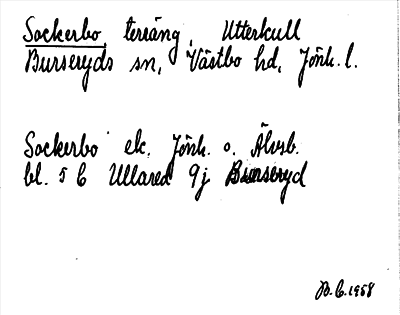 Sockerbo, terräng, Utterkull
Burseryds sn, Västbo hd, Jönk. l.
Sockerbo ek. Jönk. o. Älvsb.
bl. 5 C Ullared 9j Burseryd
B. C. 1958